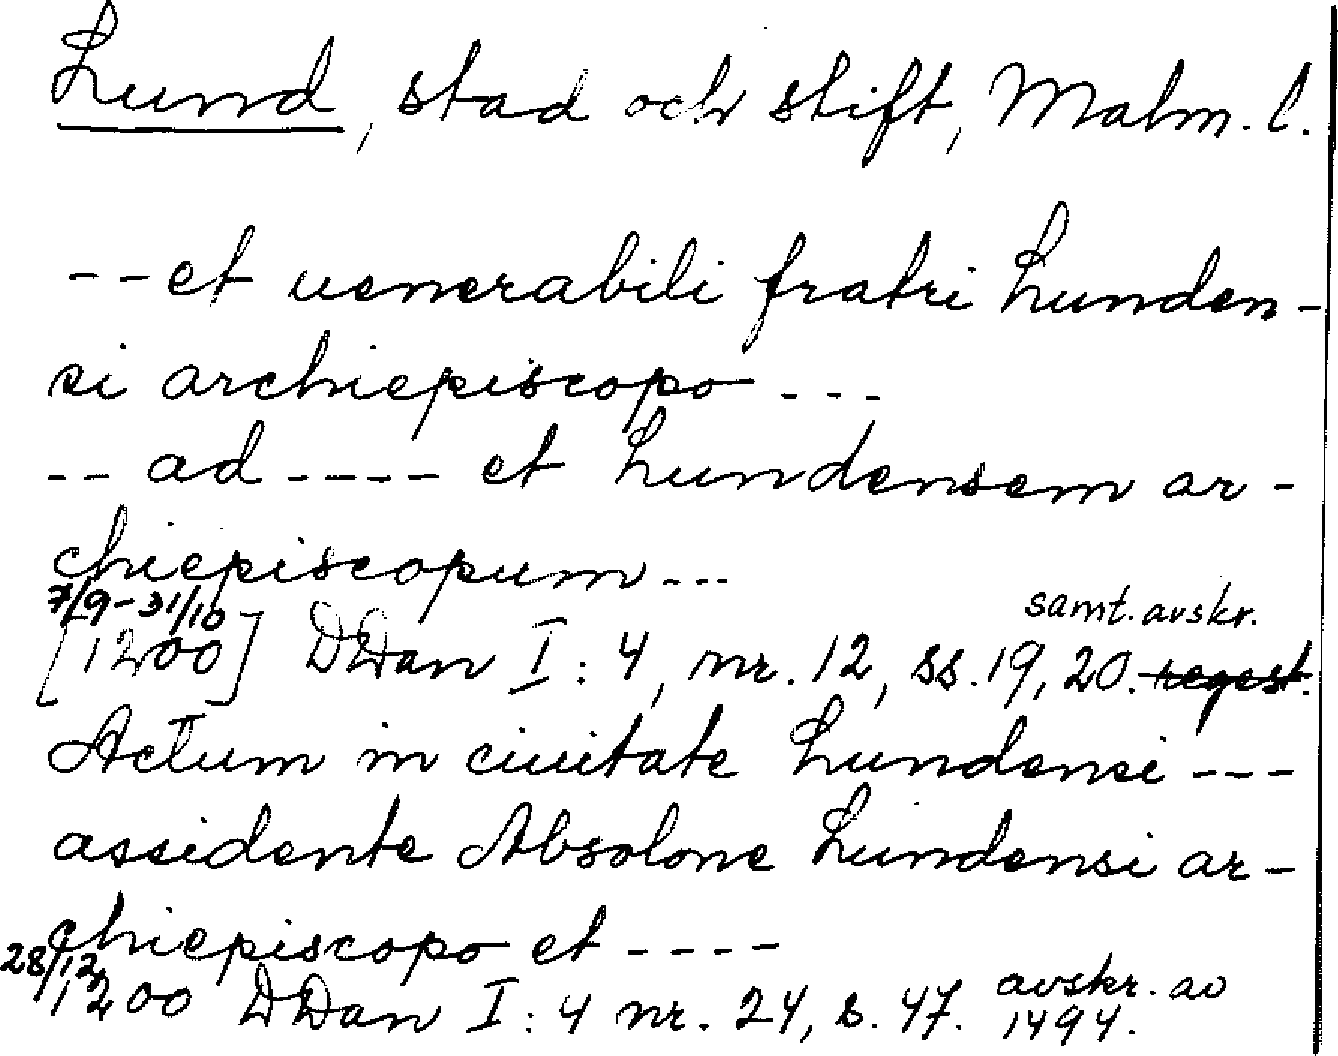 Lund, stad och stift, Malm. l.
-- et uenerabili fratri Lunden-
si archiepiscopo ---
-- ad ---- et Lundensem ar-
chiepiscopum ---
7/9-31/10 samt. avskr.
[1200] DDan I:4, nr. 12, ss. 19, 20. regest.
Actum in ciuitate Lundensi ---
assidente Absolone Lundensi ar-
chiepiscopo et ----
28/12
1200 DDan I:4 nr. 24, s. 47. avskr. av
1494.